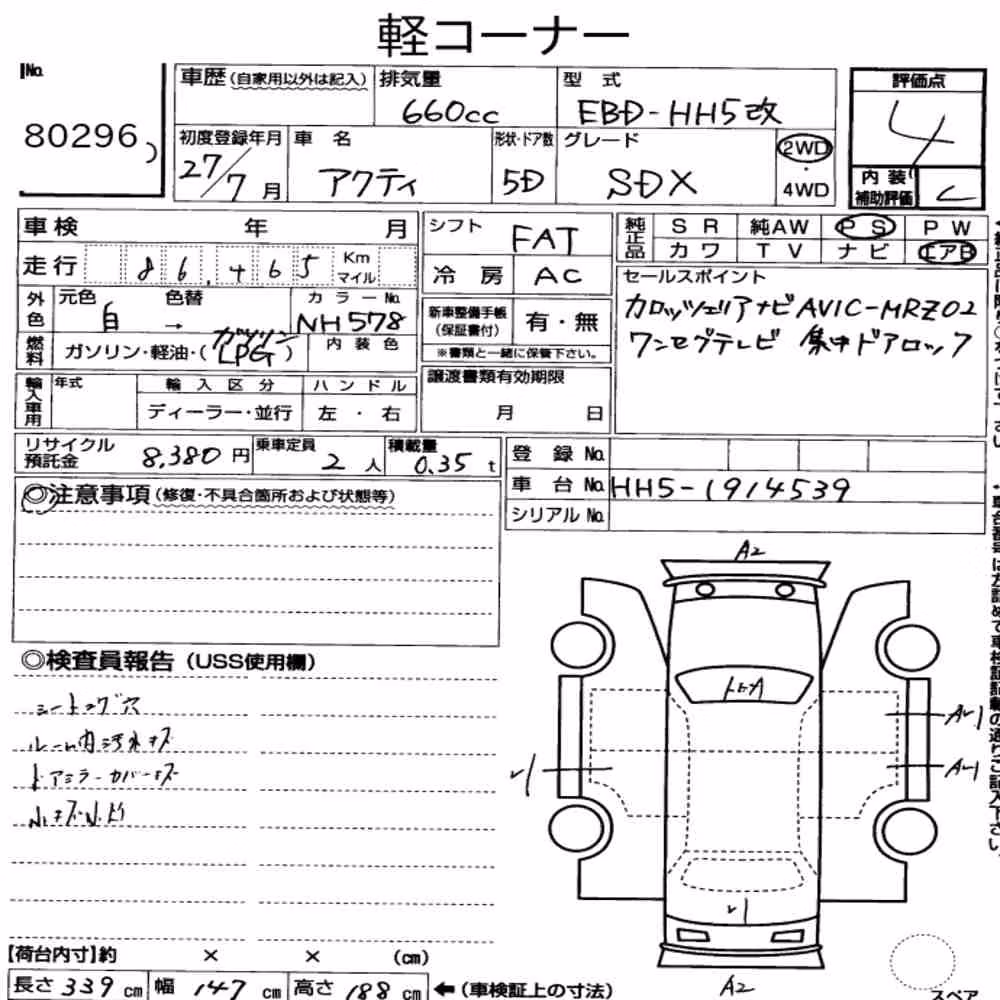 軽コーナー
No. 80296
車歴(自家用以外は記入) 排気量 660cc 型式 EBD-HH5改 評価点 4
初度登録年月 27/7月 車名 アクティ 形状・ドア数 5D グレード SDX 2WD・4WD
内装補助評価 C
車検 年 月 シフト FAT 純正品 SR 純AW PS PW
カワ TV ナビ エアB
走行 86,465 Km マイル 冷房 AC
セールスポイント
カロッツェリアナビ AVIC-MRZ02
ワンセグテレビ 集中ドアロック
外色 元色 白 → 色替 カラーNo. NH578
新車整備手帳(保証書付) 有・無
※書類と一緒に保管下さい。
燃料 ガソリン・軽油・(ガソリン LPG) 内装色
輸入車用 年式 輸入区分 ハンドル
ディーラー・並行 左・右
譲渡書類有効期限
月 日
リサイクル預託金 8,380円 乗車定員 2人 積載量 0.35t
登録No.
車台No. HH5-1914539
シリアルNo.
◎注意事項(修復・不具合箇所および状態等)
◎検査員報告(USS使用欄)
シートコゲ穴
ルーム内汚れキズ
ドアミラーカバーキズ
A2
A2
【荷台内寸】約 × × (cm)
長さ339cm 幅147cm 高さ188cm ←(車検証上の寸法)
スペア